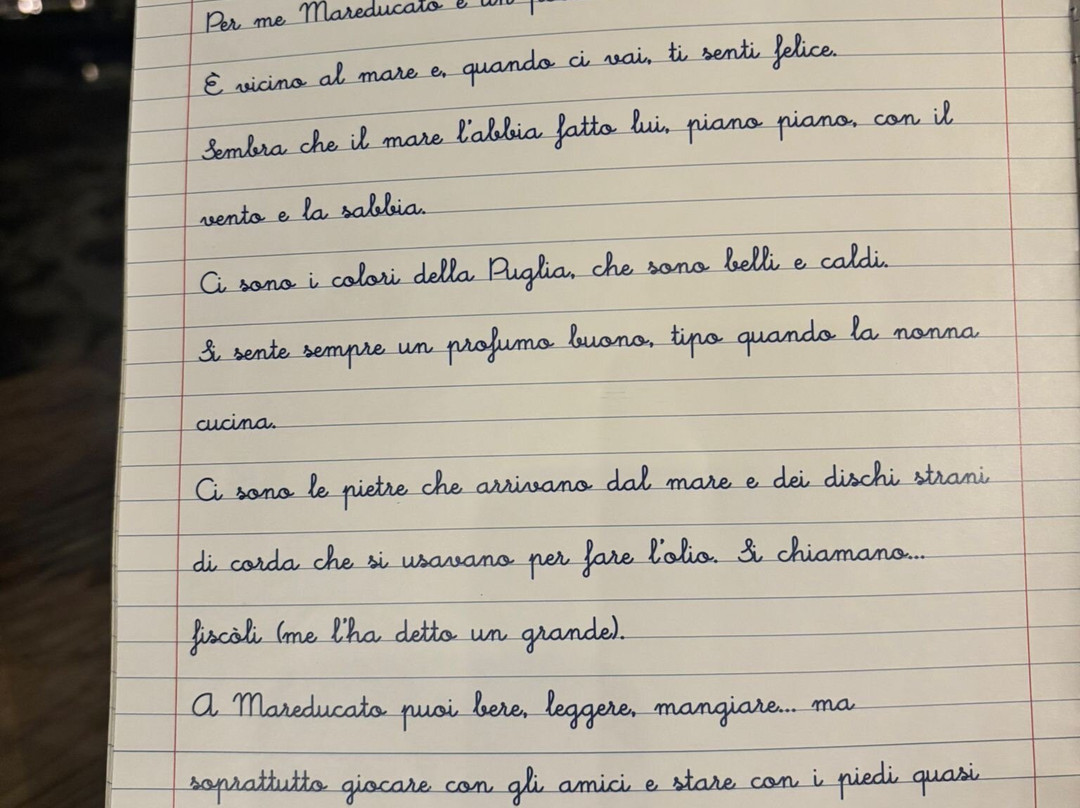 Per me Mareducato è un
È vicino al mare e, quando ci vai, ti senti felice.
Sembra che il mare l'abbia fatto lui, piano piano, con il
vento e la sabbia.
Ci sono i colori della Puglia, che sono belli e caldi.
Si sente sempre un profumo buono, tipo quando la nonna
cucina.
Ci sono le pietre che arrivano dal mare e dei dischi strani
di corda che si usavano per fare l'olio. Si chiamano...
fiscòli (me l'ha detto un grande).
A Mareducato puoi bere, leggere, mangiare... ma
soprattutto giocare con gli amici e stare con i piedi quasi